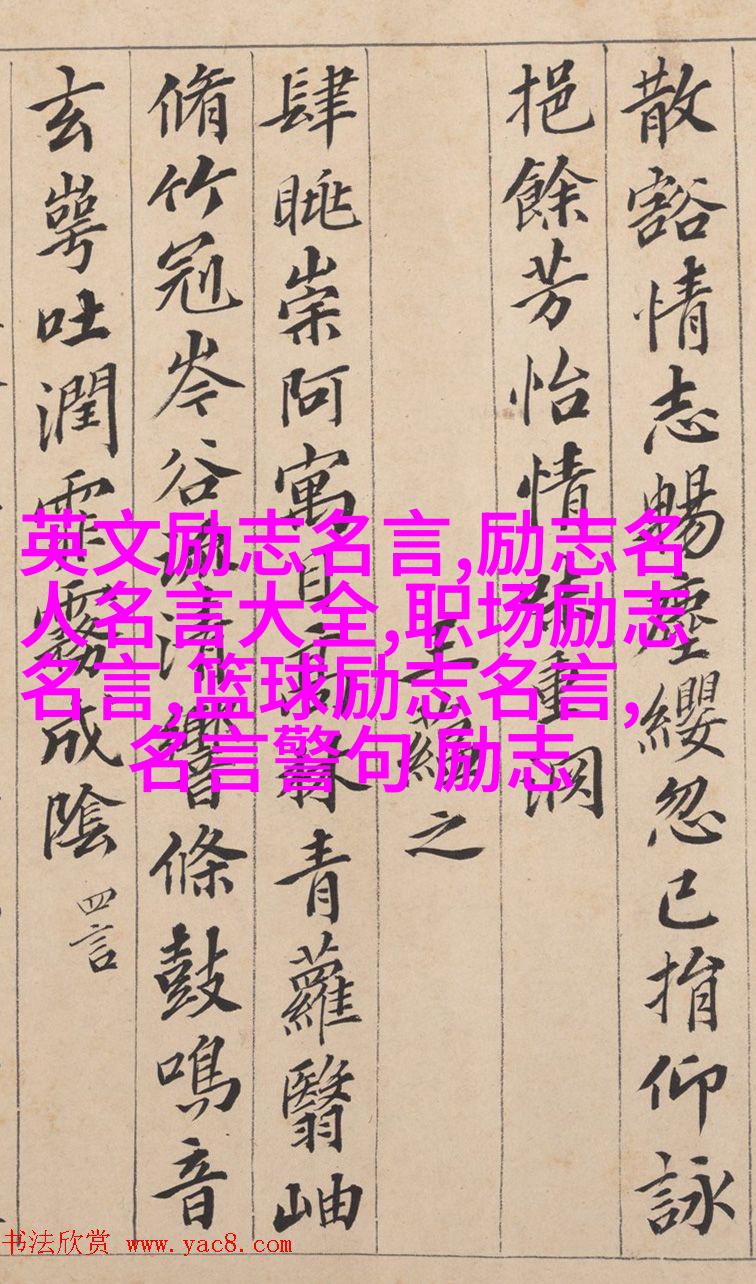 散豁情志暢塵纓忽已捐仰詠
挹餘芳怡情味重淵
王蘊之
肆眺崇阿寓目高林青蘿翳岫
脩竹冠岑谷流清響條鼓鳴音
玄崿吐潤霏霧成陰 四言
英文励志名言,励志名
人名言大全,职场励志
名言,篮球励志名言,
名言警句 励志
书法欣赏 www.yac8.com